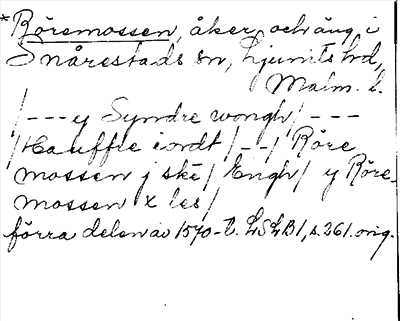 *Röremossen, åker och äng i
Snårestads sn, Ljunits hd,
Malm. l.
/--- y Syndre wongh/ ---
/Hauffre iordt/--/ Röre
mossen j ske/ Engh/ y Röre-
mossen x les/
förra delen av 1570-t. LSLB1, s. 261. orig.